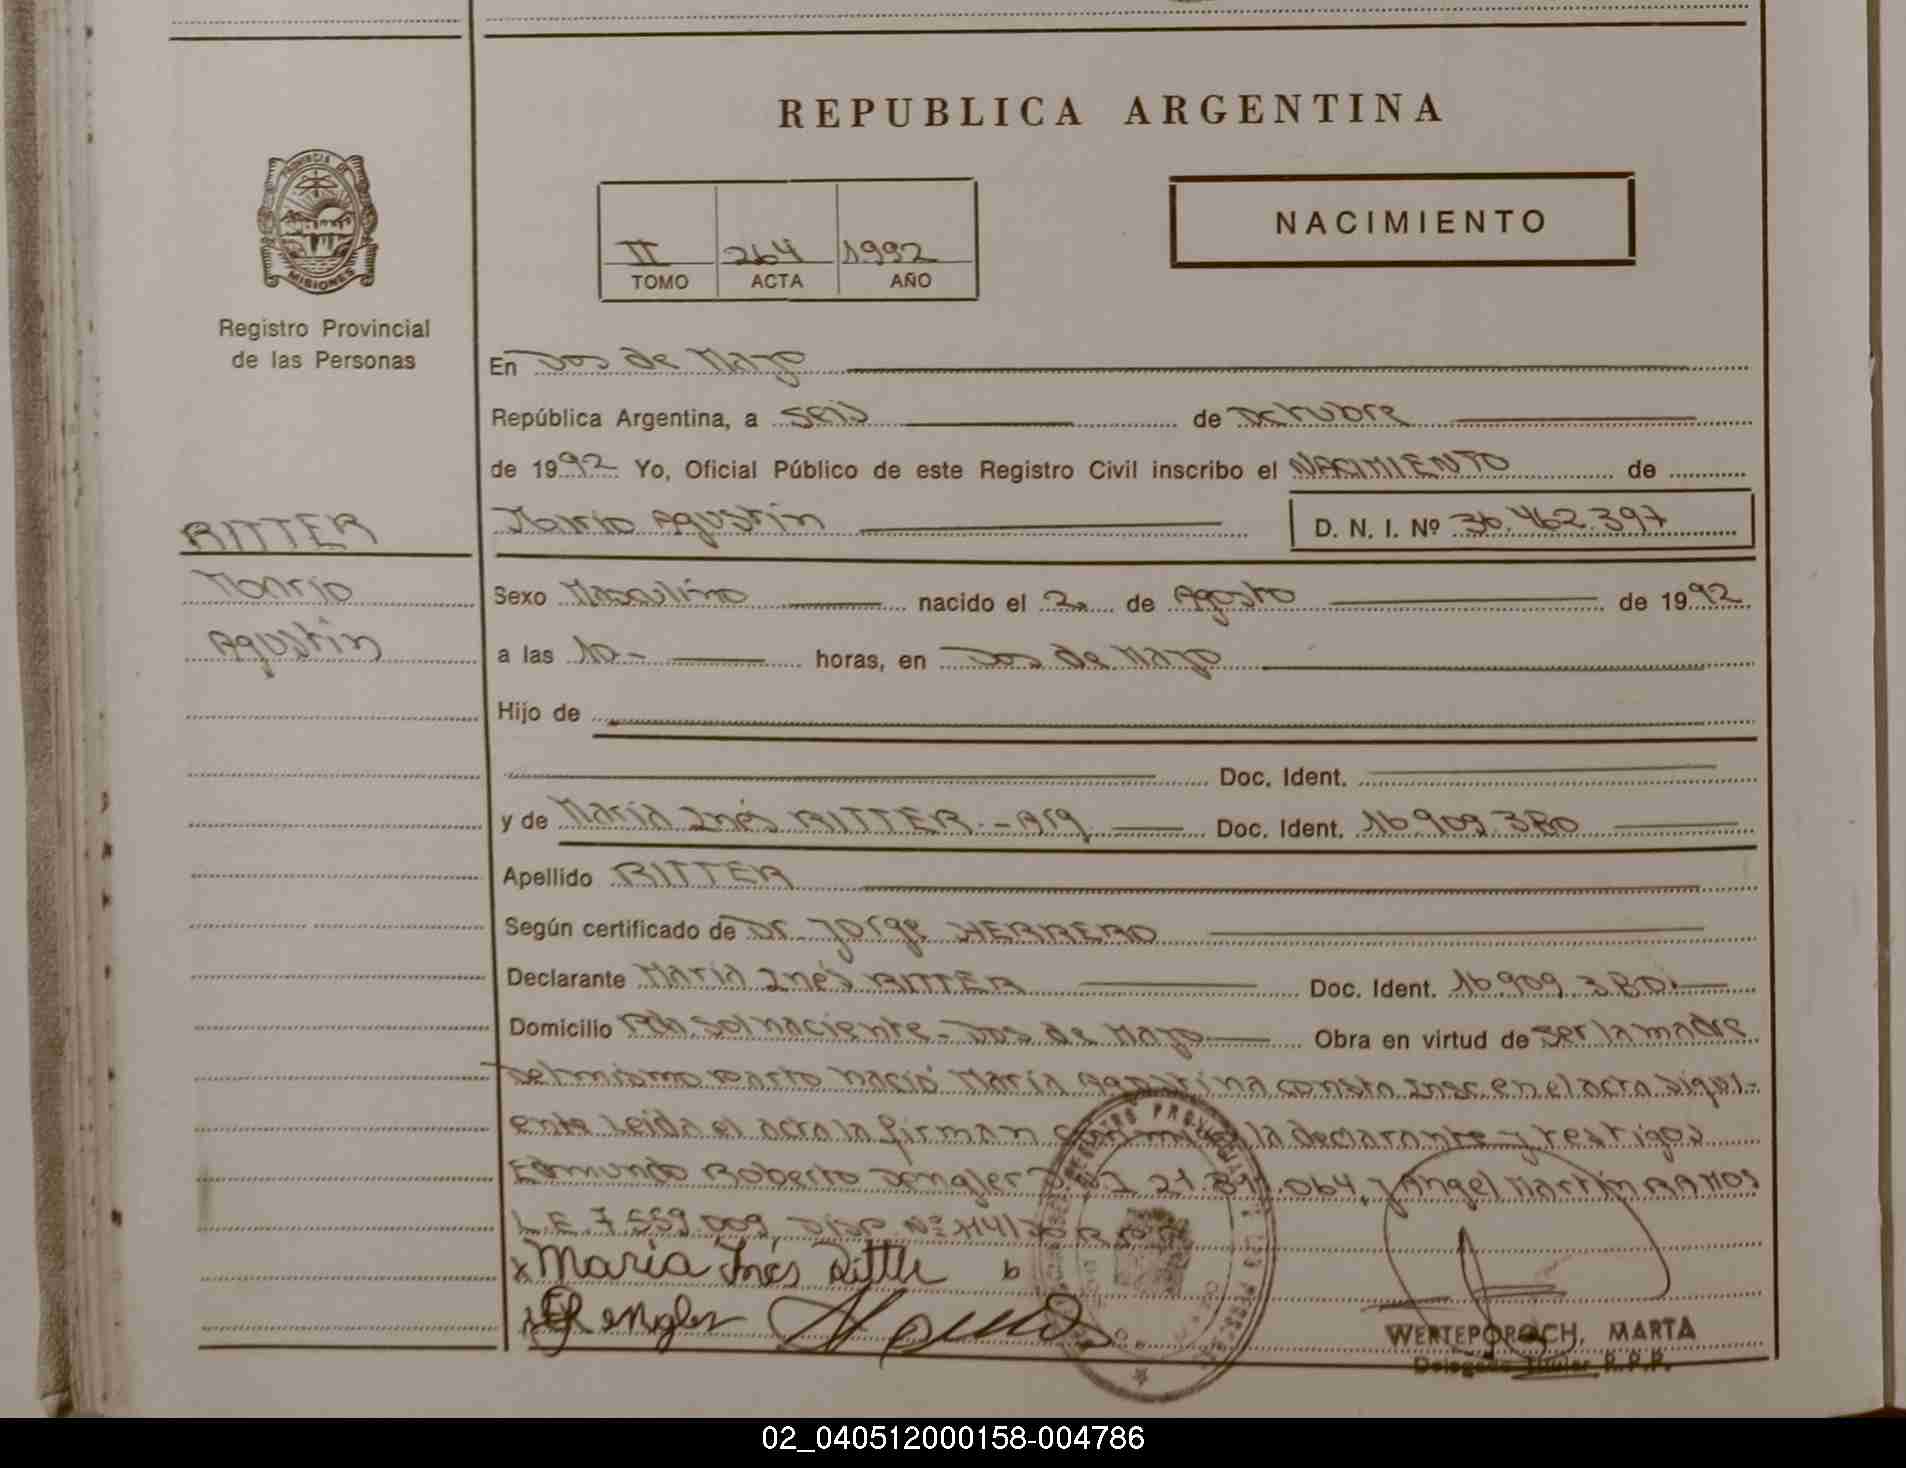 REPUBLICA ARGENTINA
PROVINCIA DE
MISIONES
Registro Provincial
de las Personas
II 264 1992
TOMO ACTA AÑO
NACIMIENTO
En Dos de Mayo
República Argentina, a seis de octubre
de 1992 Yo, Oficial Público de este Registro Civil inscribo el NACIMIENTO de
RITTER
Mario Agustín D. N. I. Nº 36.462.397
Mario
Sexo Masculino nacido el 2 de Agosto de 1992
Agustín
a las 10- horas, en Dos de Mayo
Hijo de
Doc. Ident.
y de María Inés RITTER - Arg Doc. Ident. 16.909.380
Apellido RITTER
Según certificado de Dr. Jorge HERRERO
Declarante María Inés RITTER Doc. Ident. 16.909.380
Domicilio Sol naciente - Dos de Mayo Obra en virtud de ser la madre
Del mismo parto nació María Agustina consta insc. en el acta sigui-
ente leida el acta la firman la declarante y testigos
Edmundo Roberto Dengler 064, y Angel Martín RAMOS
L.E. 7.559.009 DISP Nº
María Inés Ritter
WERTEPOROCH, MARTA
Delegado Titular R.P.P.
02_040512000158-004786